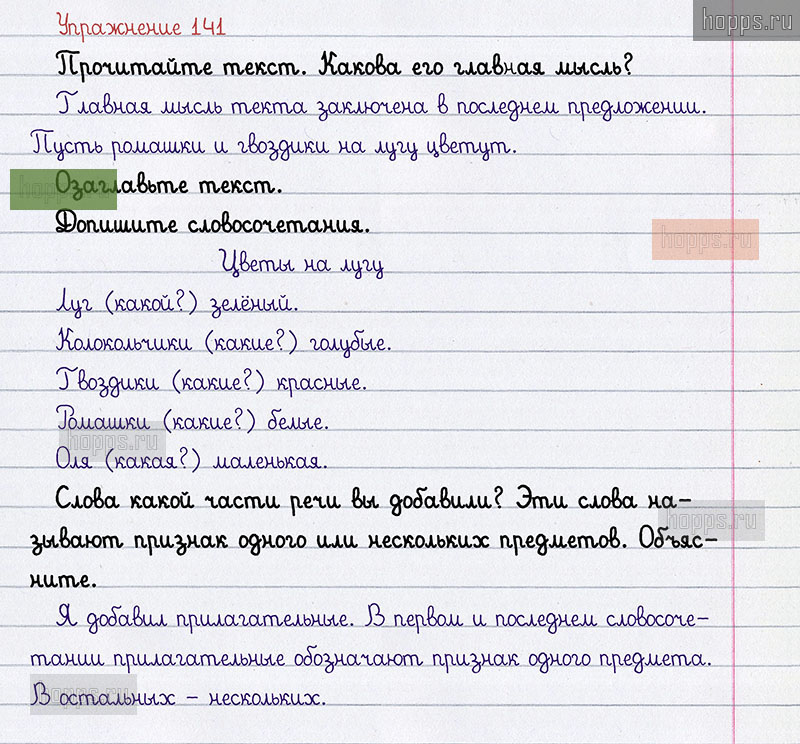 hopps.ru
Упражнение 141
Прочитайте текст. Какова его главная мысль?
Главная мысль текта заключена в последнем предложении.
Пусть ромашки и гвоздики на лугу цветут.
hopps.ru
Озаглавьте текст.
Допишите словосочетания.
hopps.ru
Цветы на лугу
Луг (какой?) зелёный.
Колокольчики (какие?) голубые.
Гвоздики (какие?) красные.
Ромашки (какие?) белые.
hopps.ru
Оля (какая?) маленькая.
Слова какой части речи вы добавили? Эти слова на-
hopps.ru
зывают признак одного или нескольких предметов. Объяс-
ните.
Я добавил прилагательные. В первом и последнем словосоче-
тании прилагательные обозначают признак одного предмета.
В остальных – нескольких.
hopps.ru